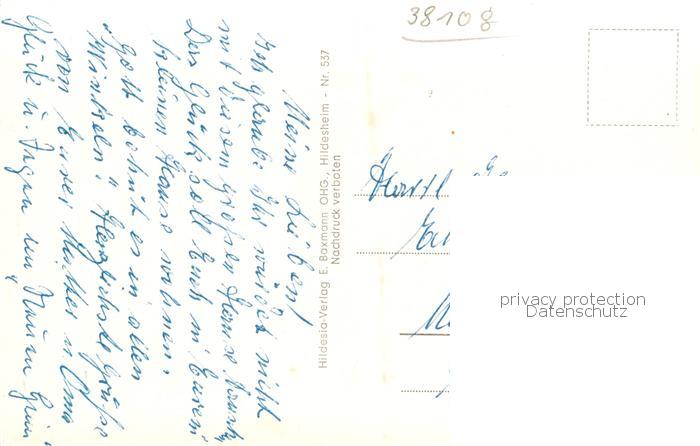 38108
Meine Lieben!
Ich glaube Ihr würdet nicht
mit diesem großen Hause tausch
Das Glück soll Euch in Eurem
kleinen Hause wohnen.
Gott wohnt es in allen
Winkeln." Herzlichste Grüße
von Eurer Mutter u. Oma
Glück u. Segen im Neuen
Hildesia-Verlag E. Baxmann OHG., Hildesheim - Nr. 537
Nachdruck verboten
privacy protection
Datenschutz